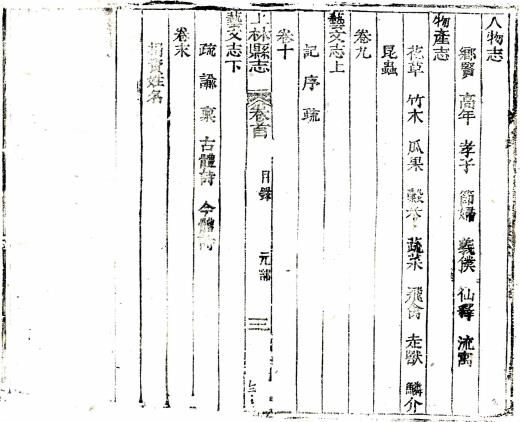 人物志
鄉賢 高年 孝子 節婦 義僕 仙釋 流寓
物產志
花草 竹木 瓜果 穀 蔬菜 飛禽 走獸 鱗介
昆蟲
卷九
藝文志上
記 序 疏
卷十
上林縣志 卷首 目錄 元部 三
藝文志下
疏 論 稟 古體詩 今體詩
卷末
捐資姓名